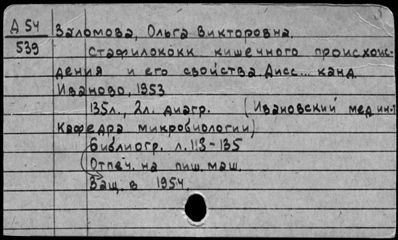 Д 54
539
Заломова, Ольга Викторовна.
Стафилококк кишечного происхож-
дения и его свойства. Дисс... канд.
Иваново, 1953
135л., 2л. диагр. (Ивановский мед ин-т
Кафедра микробиологии)
Библиогр. л. 113-135
Отпеч. на пиш. маш.
Защ. в 1954.